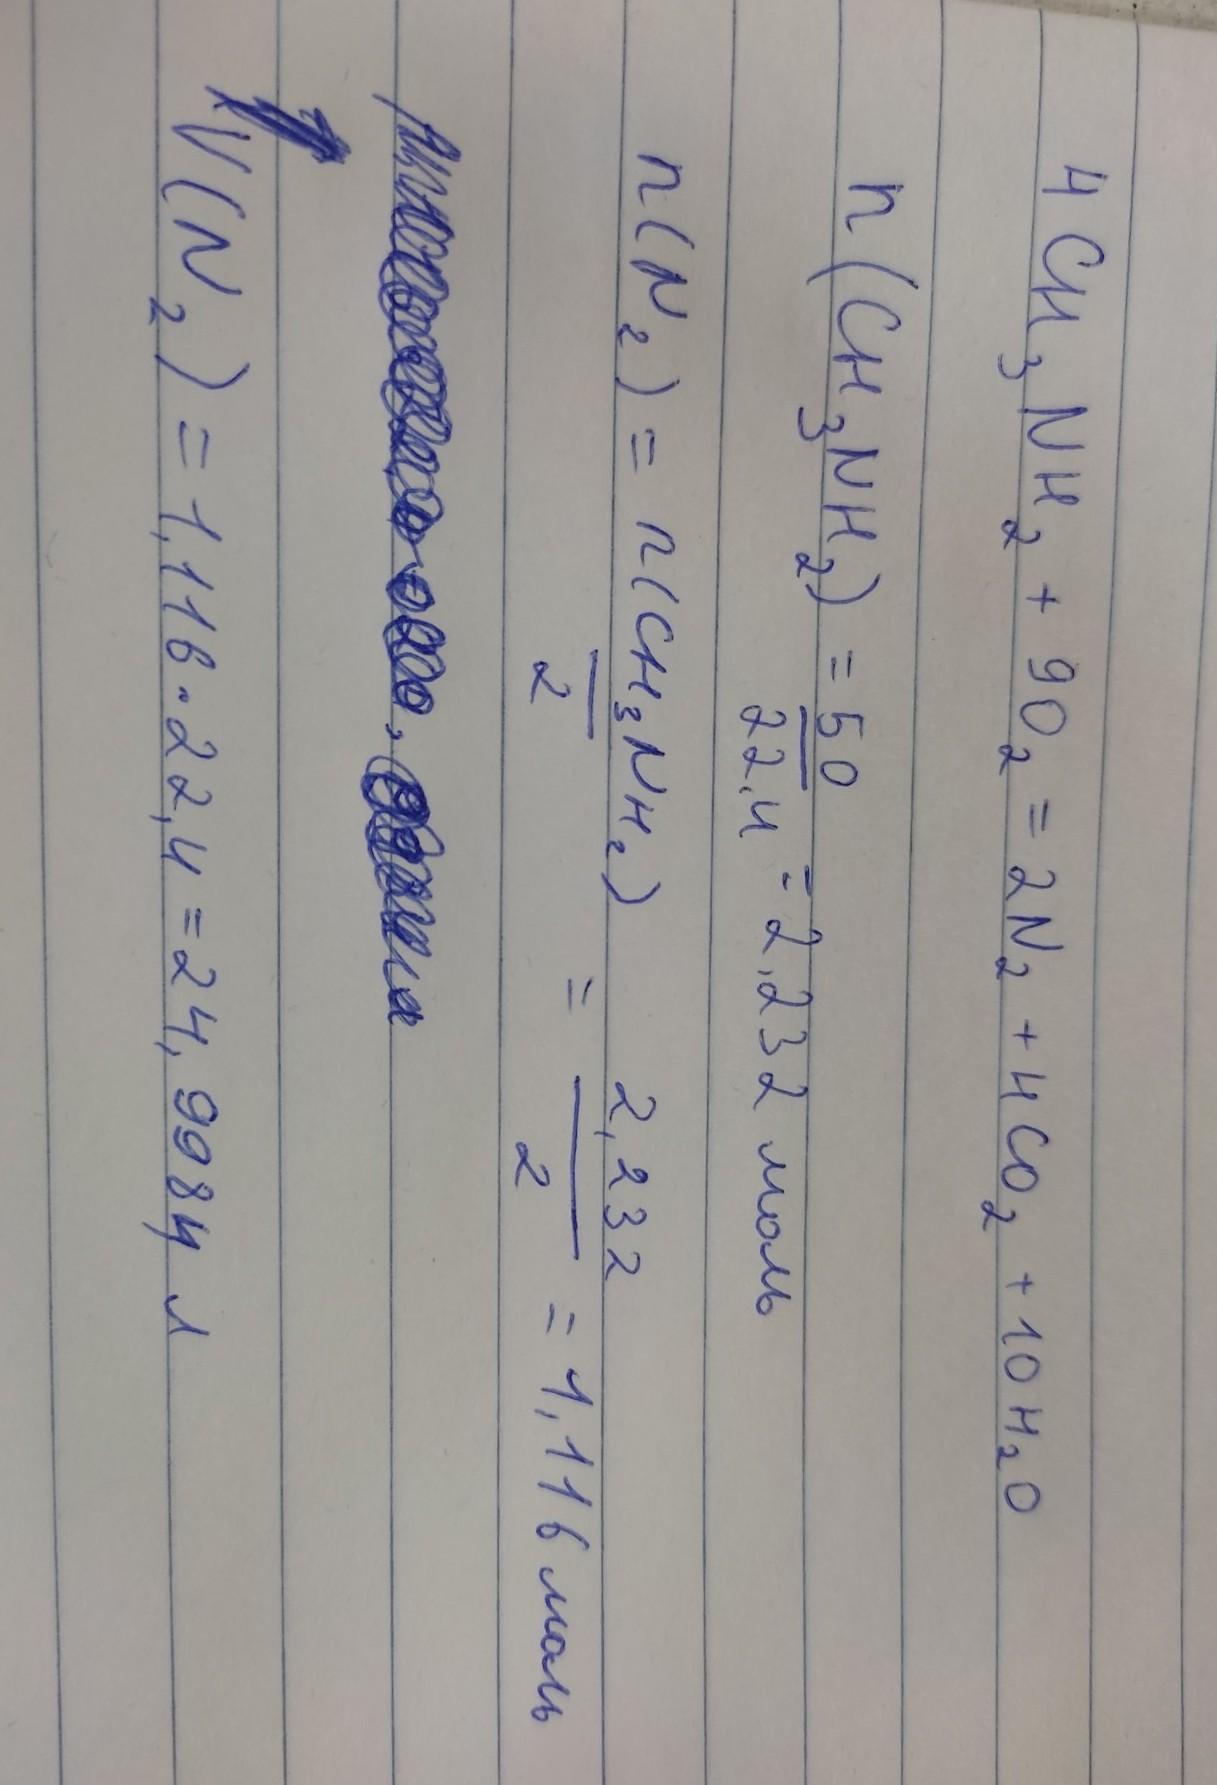 4CH₃NH₂ + 9O₂ = 2N₂ + 4CO₂ + 10H₂O
n(CH₃NH₂) = 50/22,4 = 2,232 моль
n(N₂) = n(CH₃NH₂)/2 = 2,232/2 = 1,116 моль
V(N₂) = 1,116·22,4 = 24,9984 л